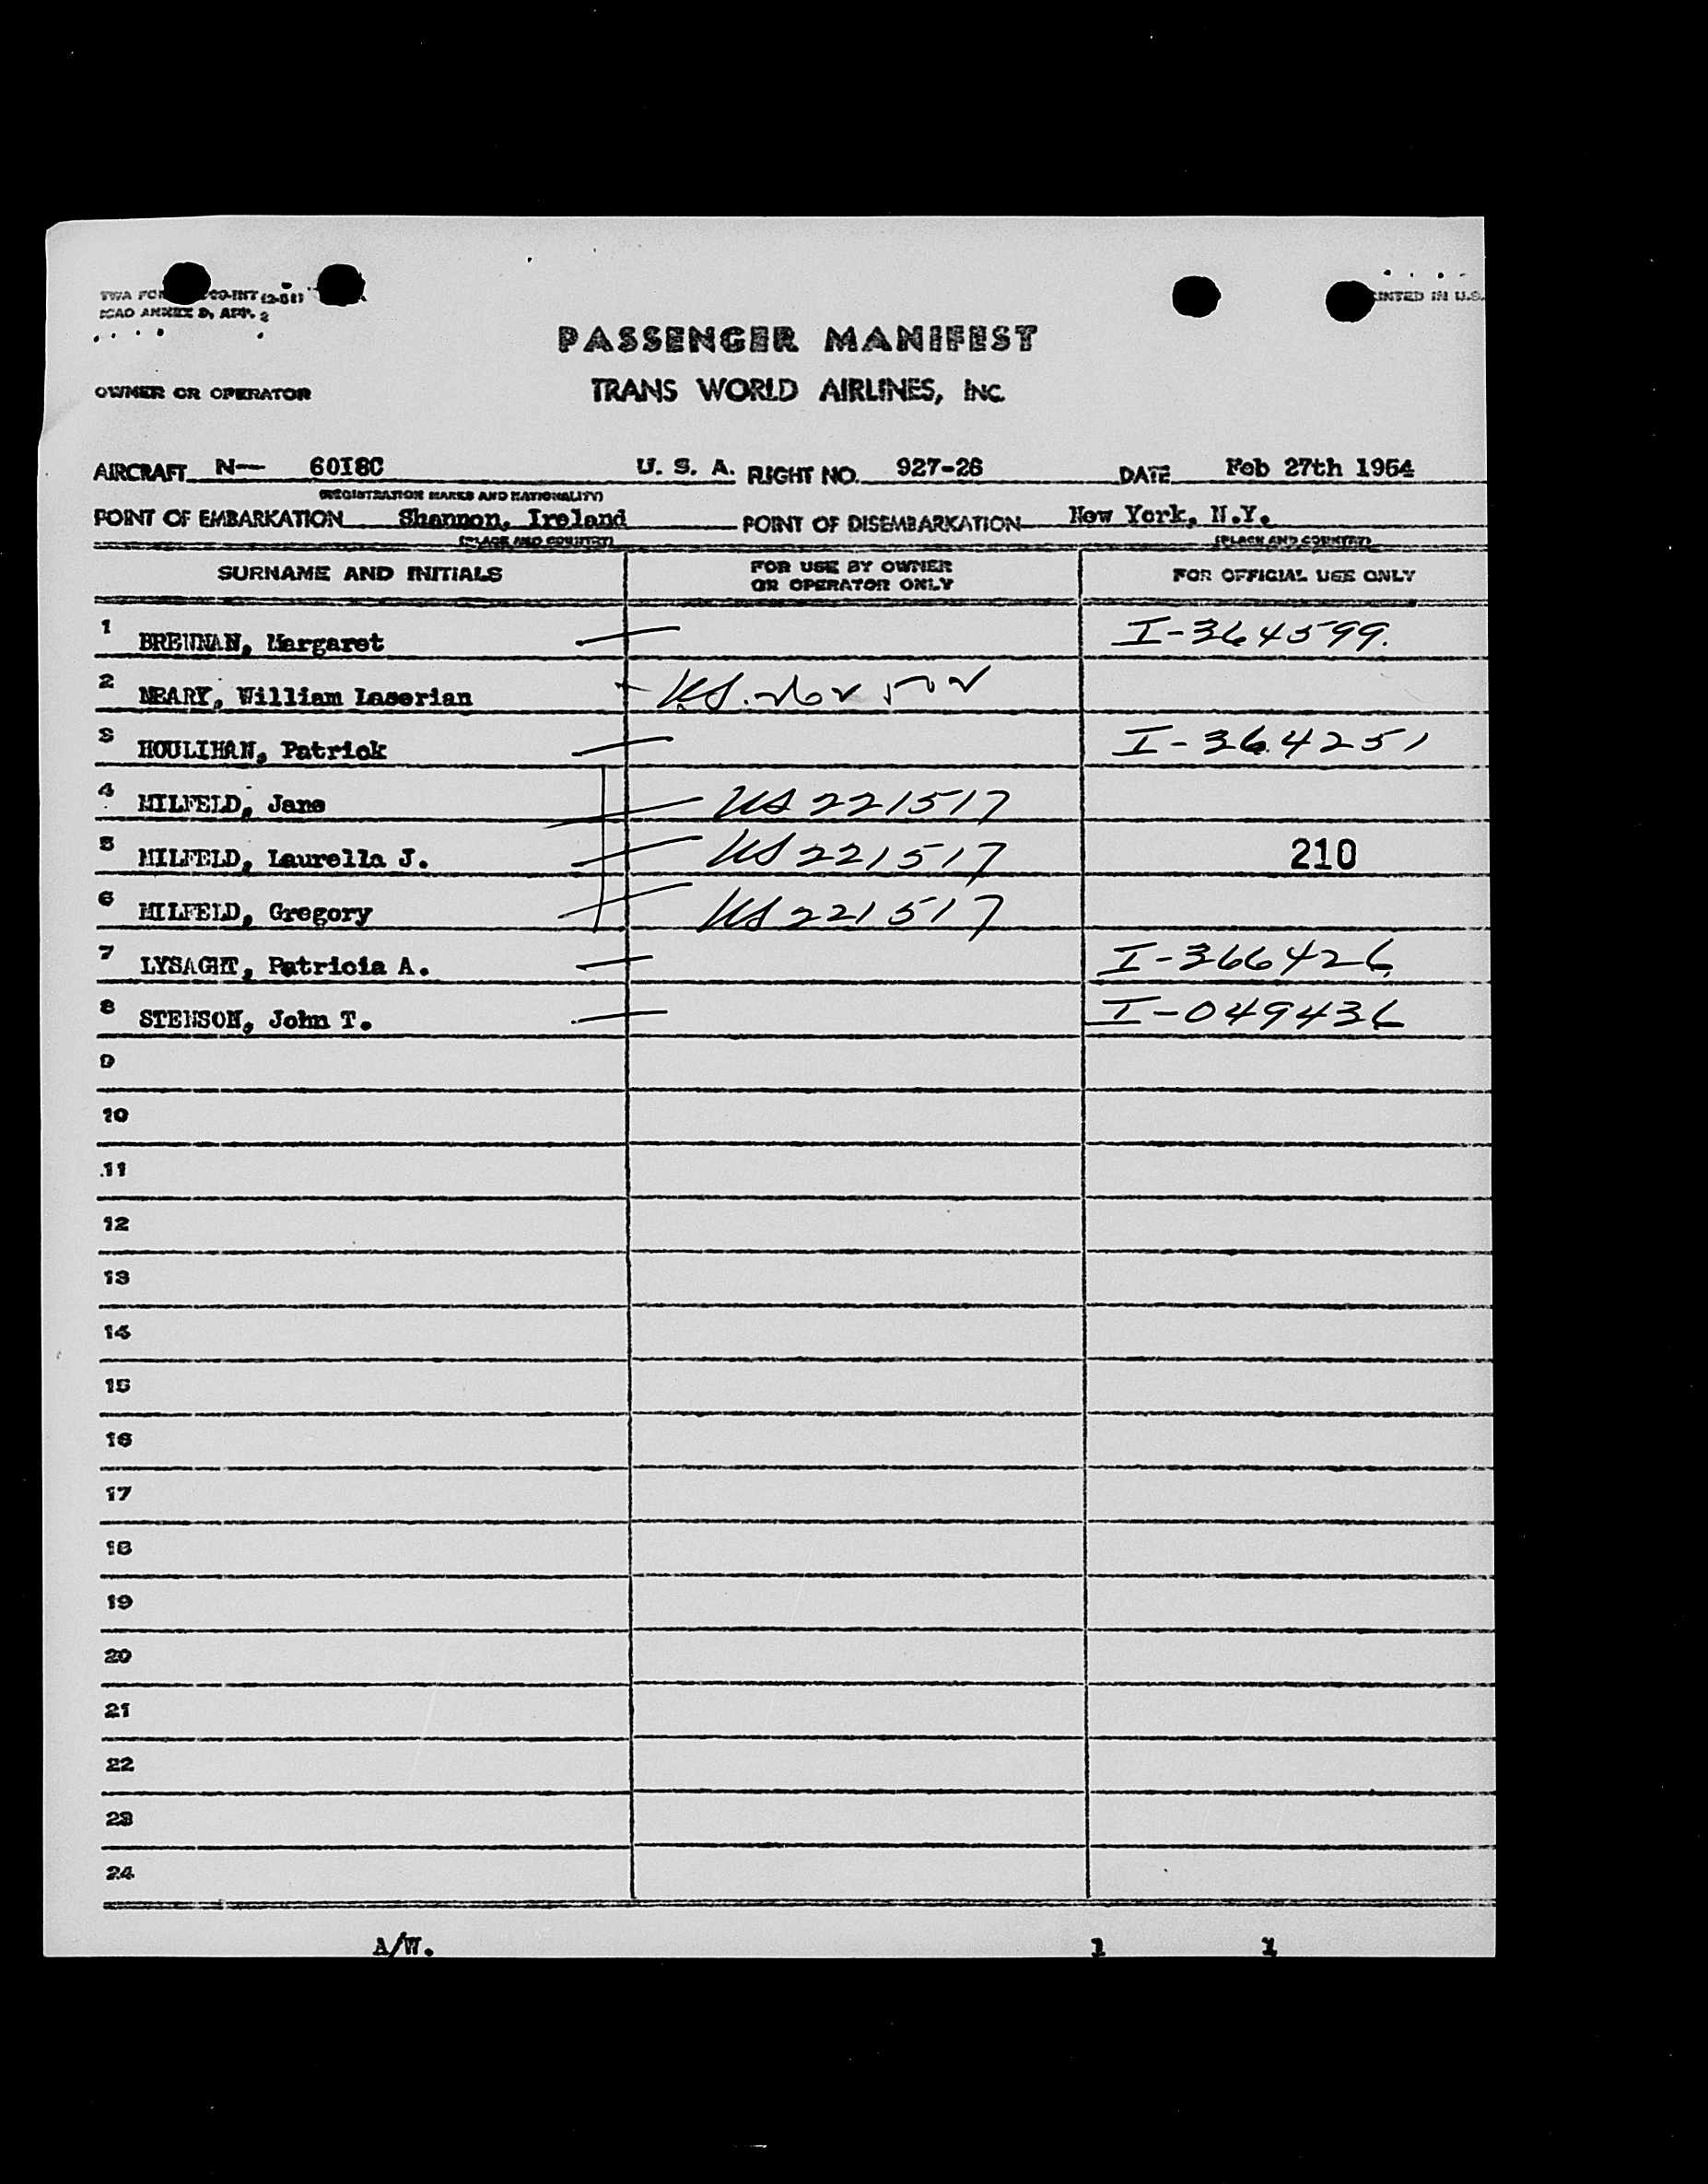 ICAO ANNEX 9, APP. 2
PRINTED IN U.S.
PASSENGER MANIFEST
OWNER OR OPERATOR TRANS WORLD AIRLINES, INC.
AIRCRAFT N— 6018C U. S. A. FLIGHT NO. 927-26 DATE Feb 27th 1954
(REGISTRATION MARKS AND NATIONALITY)
POINT OF EMBARKATION Shannon, Ireland POINT OF DISEMBARKATION New York, N.Y.
(PLACE AND COUNTRY) (PLACE AND COUNTRY)
SURNAME AND INITIALS FOR USE BY OWNER OR OPERATOR ONLY FOR OFFICIAL USE ONLY
1 BRENNAN, Margaret I-364599.
2 NEARY, William Laserian US.
3 HOULIHAN, Patrick I-364251
4 MILFELD, Jane US 221517
5 MILFELD, Laurella J. US 221517 210
6 MILFELD, Gregory US 221517
7 LYSAGHT, Patricia A. I-366426
8 STENSON, John T. I-049436
9
10
11
12
13
14
15
16
17
18
19
20
21
22
23
24
A/W. 1 1